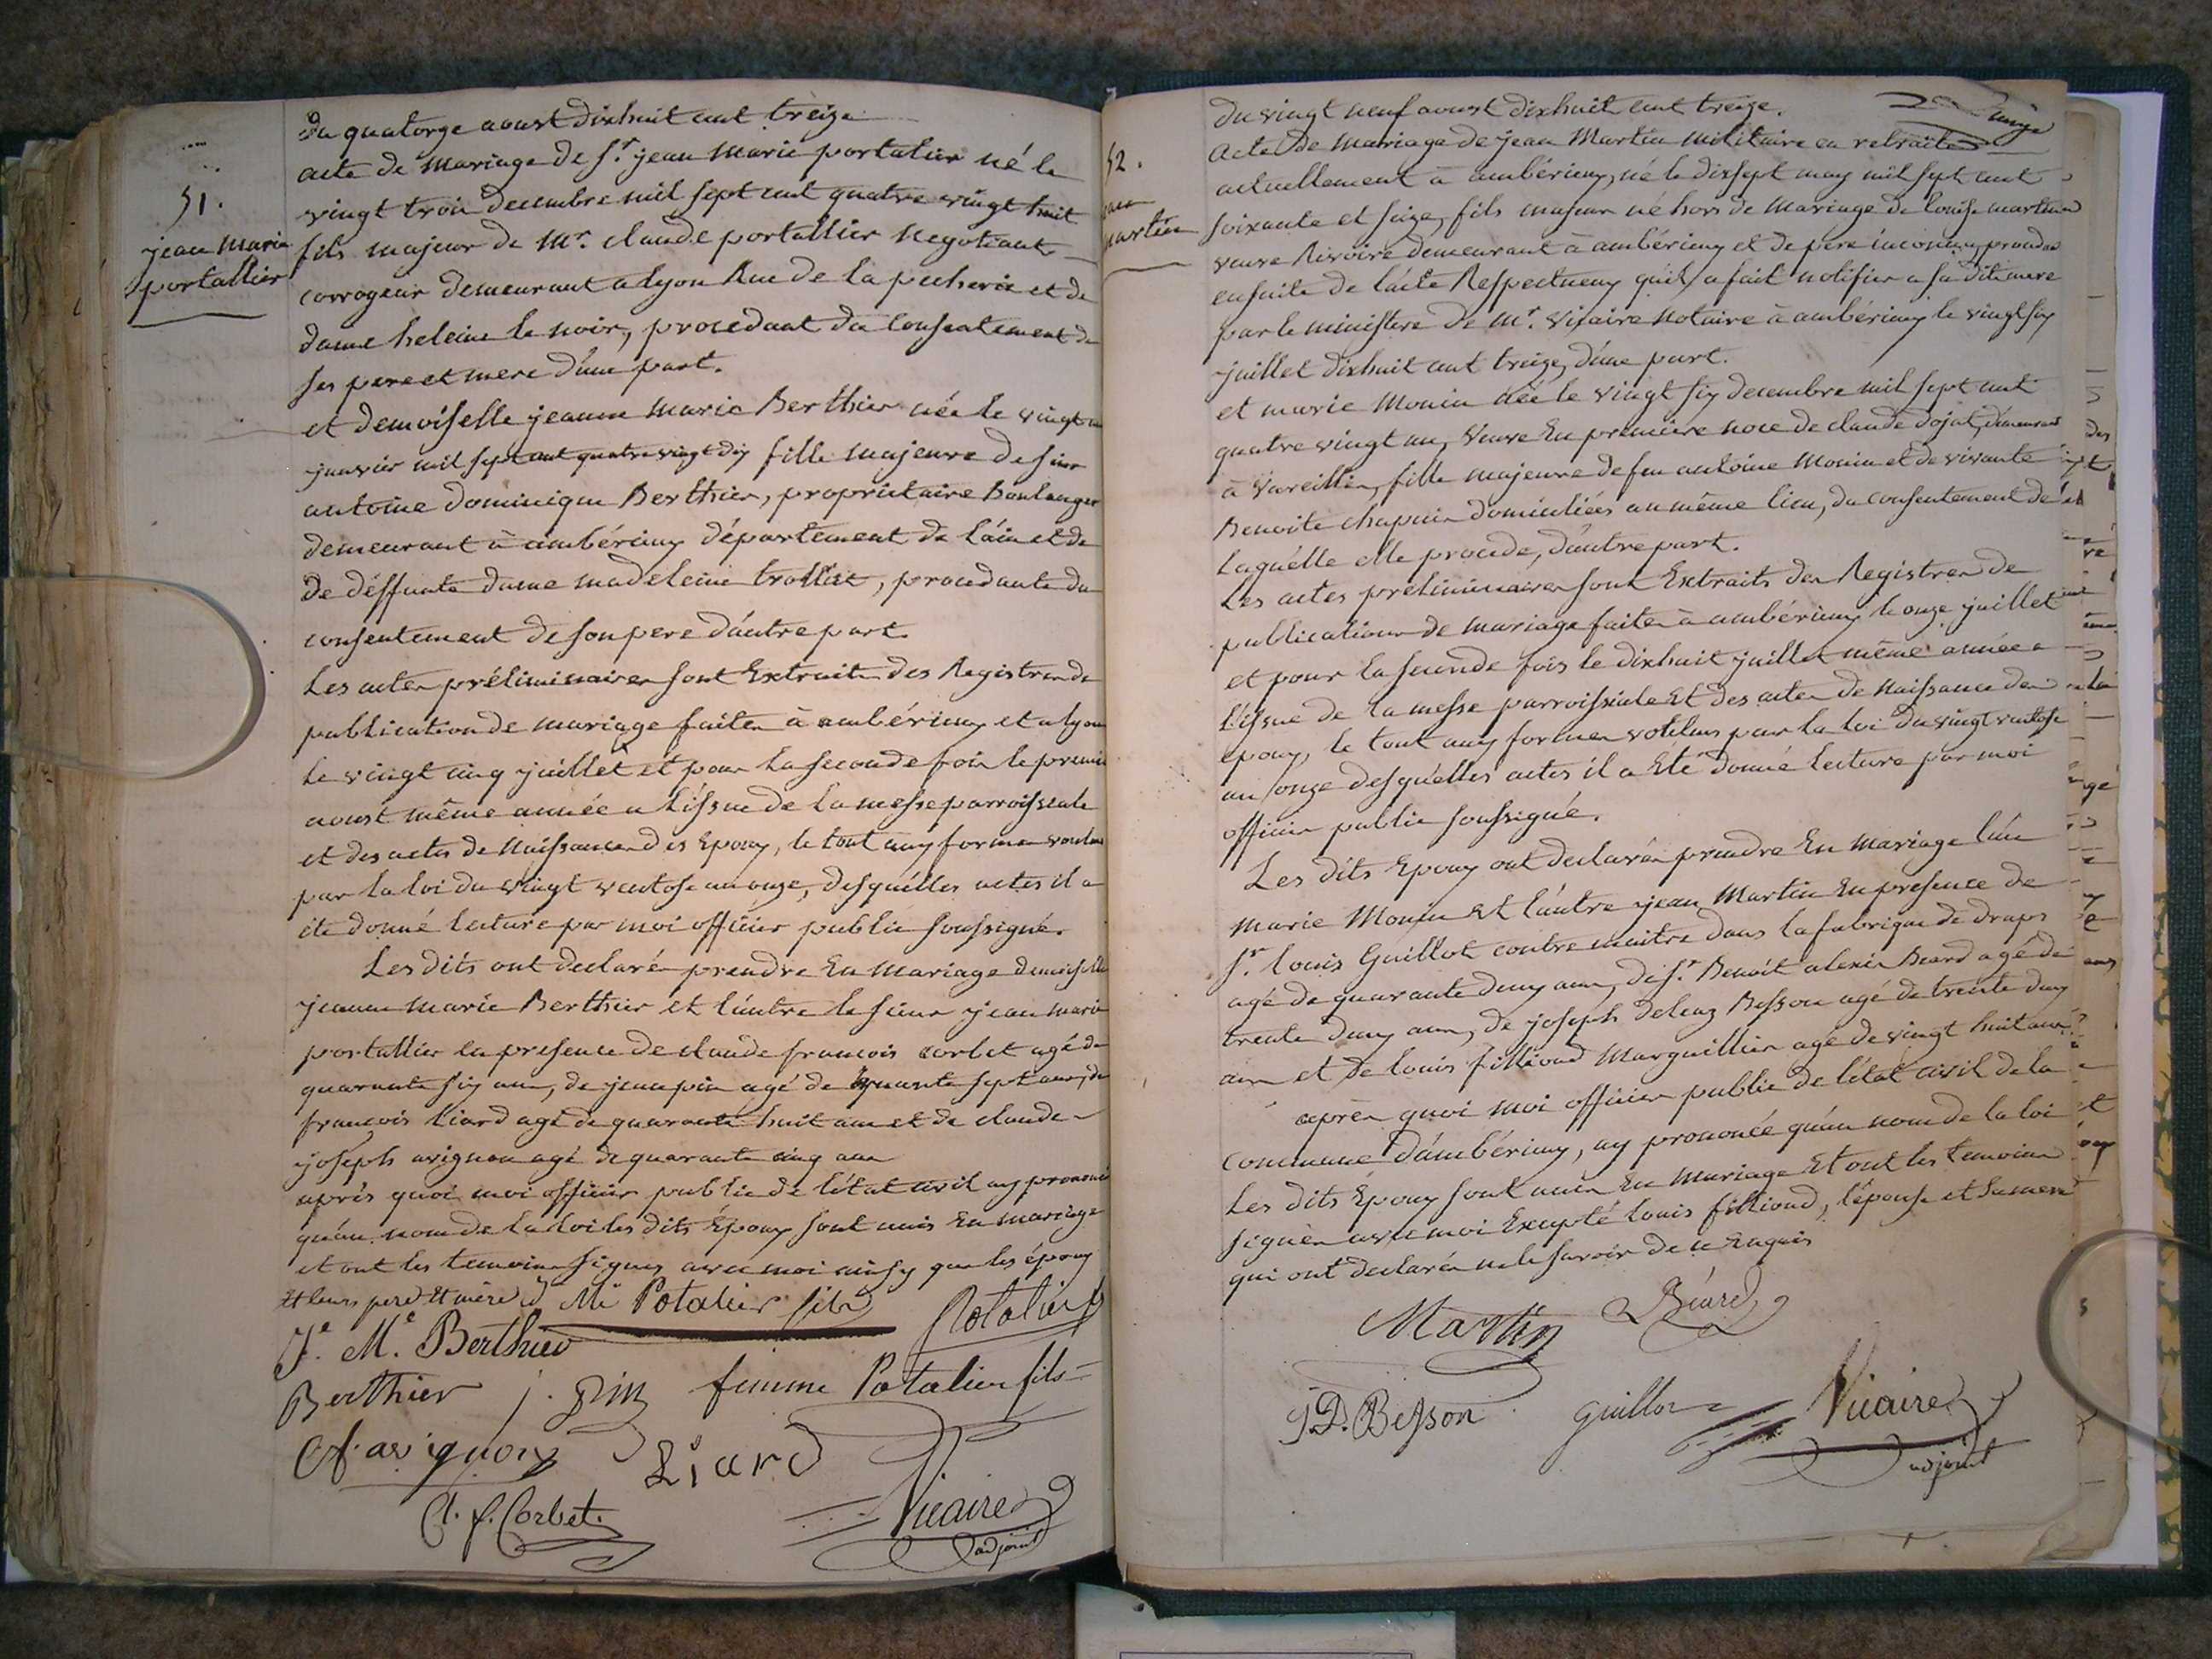 51.
jean marie
portallier
Du quatorze aoust dixhuit cent treize
acte de mariage de Sr. jean marie portalier né le
vingt trois decembre mil sept cent quatre vingt huit
fils majeur de Mr. claude portallier negotiant
corroyeur demeurant a lyon Rue de la pecherie et de
dame heleine le noir, procedant du consentement de
ses pere et mere d'une part.
et demoiselle jeanne marie Berthier née le vingt
janvier mil sept cent quatre vingt dix fille majeure de sieur
antoine dominique Berthier, proprietaire Boulanger
demeurant à ambérieux département de l'ain et de
de déffunte dame madeleine trolliet, procedante du
consentement de son pere d'autre part.
Les actes préliminaires sont Extraits des Registres de
publication de mariage faites à ambérieux et a lyon
le vingt cinq juillet et pour la seconde fois le premier
aoust même année a l'issue de la messe parroissiale
et des actes de Naissances des Epoux, le tout aux formes voulues
par la loi du vingt ventose an onze, desquelles actes il a
été donné lecture par moi officier public soussigné.
Les dits ont declarés prendre En mariage demoiselle
jeanne marie Berthier et l'autre le sieur jean marie
portallier en presence de claude francois corbet agé de
quarante six ans, de jean pin agé de quarante sept ans, de
francois liard agé de quarante huit ans et de claude
joseph avignon agé de quarante cinq ans
après quoi moi officier public de l'état civil ay prononcé
qu'au nom de la loi les dits Époux sont unis En mariage
et ont les temoins signes avec moi ainsy que les époux
et leurs pere et mère
J Me Potalier fils
Potalier
Je. Me. Berthier
Berthier j. Pin femme Potalier fils
Cf. avignon Liard
C. f. Corbet.
Vicaire
adjoint
52.
jean
martin
Du vingt neuf aoust dixhuit cent treize.
Acte de mariage de jean Martin militaire en retraite
actuellement à ambérieux, né le dixsept may mil sept cent
soixante et seize, fils majeur né hors de mariage de louise martin
veuve Rivoire demeurant à ambérieux et de pere inconnu, procedant
ensuite de l'acte Respectueux qu'il a fait notifier a sa dite mere
par le ministere de Mr. Vicaire Notaire à ambérieux le vingt six
juillet dixhuit cent treize, d'une part.
et marie Monin née le vingt six decembre mil sept cent
quatre vingt un, veuve En premiere noce de claude dojat, demeurant
à Vareilles, fille majeure de feu antoine Monin et de vivante
Benoite chapuis domiciliées au même lieu, du consentement de
Laquélle elle procede, d'autre part.
Les actes préliminaires sont Extraits des Registres de
publications de mariage faites à ambérieux le onze juillet
et pour la seconde fois le dixhuit juillet même année a
l'issue de la messe parroissiale Et des actes de Naissance des
époux, le tout aux formes voulues par la loi du vingt ventose
an onze desquélles actes il a Eté donné lecture par moi
officier public soussigné.
Les dits Epoux ont declarés prendre En mariage l'un
marie Monin Et l'autre jean Martin En presence de
Sr. louis Guillot contre maitre dans la fabrique de draps
agé de quarante deux ans, de Sr. Benoit alexis Beard agé de
trente deux ans, de joseph deleaz Besson agé de trente deux
ans et de louis fillioud Marguillier agé de vingt huit ans
après quoi moi officier public de l'état civil de la
commune d'ambérieux, ay prononcé qu'au nom de la loi
Les dits Epoux sont unis En mariage Et ont les temoins
signés avec moi Excepté louis fillioud, l'épouse et sa mere
qui ont declarés ne le savoir de ce Enquis
Martin Béard
J. D. Besson guillot Vicaire
adjoint